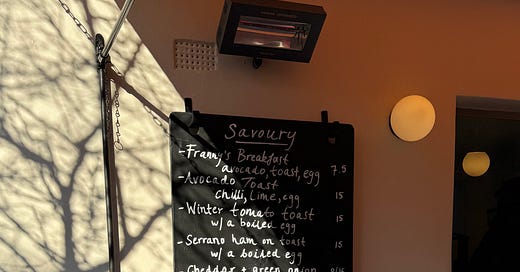 Savoury
-Franny's Breakfast
avocado, toast, egg 7.5
-Avocado Toast
chilli, Lime, egg 15
-Winter tomato toast
w/ a boiled egg 15
-Serrano ham on toast
w/ a boiled egg 15
-Cheddar + green onion